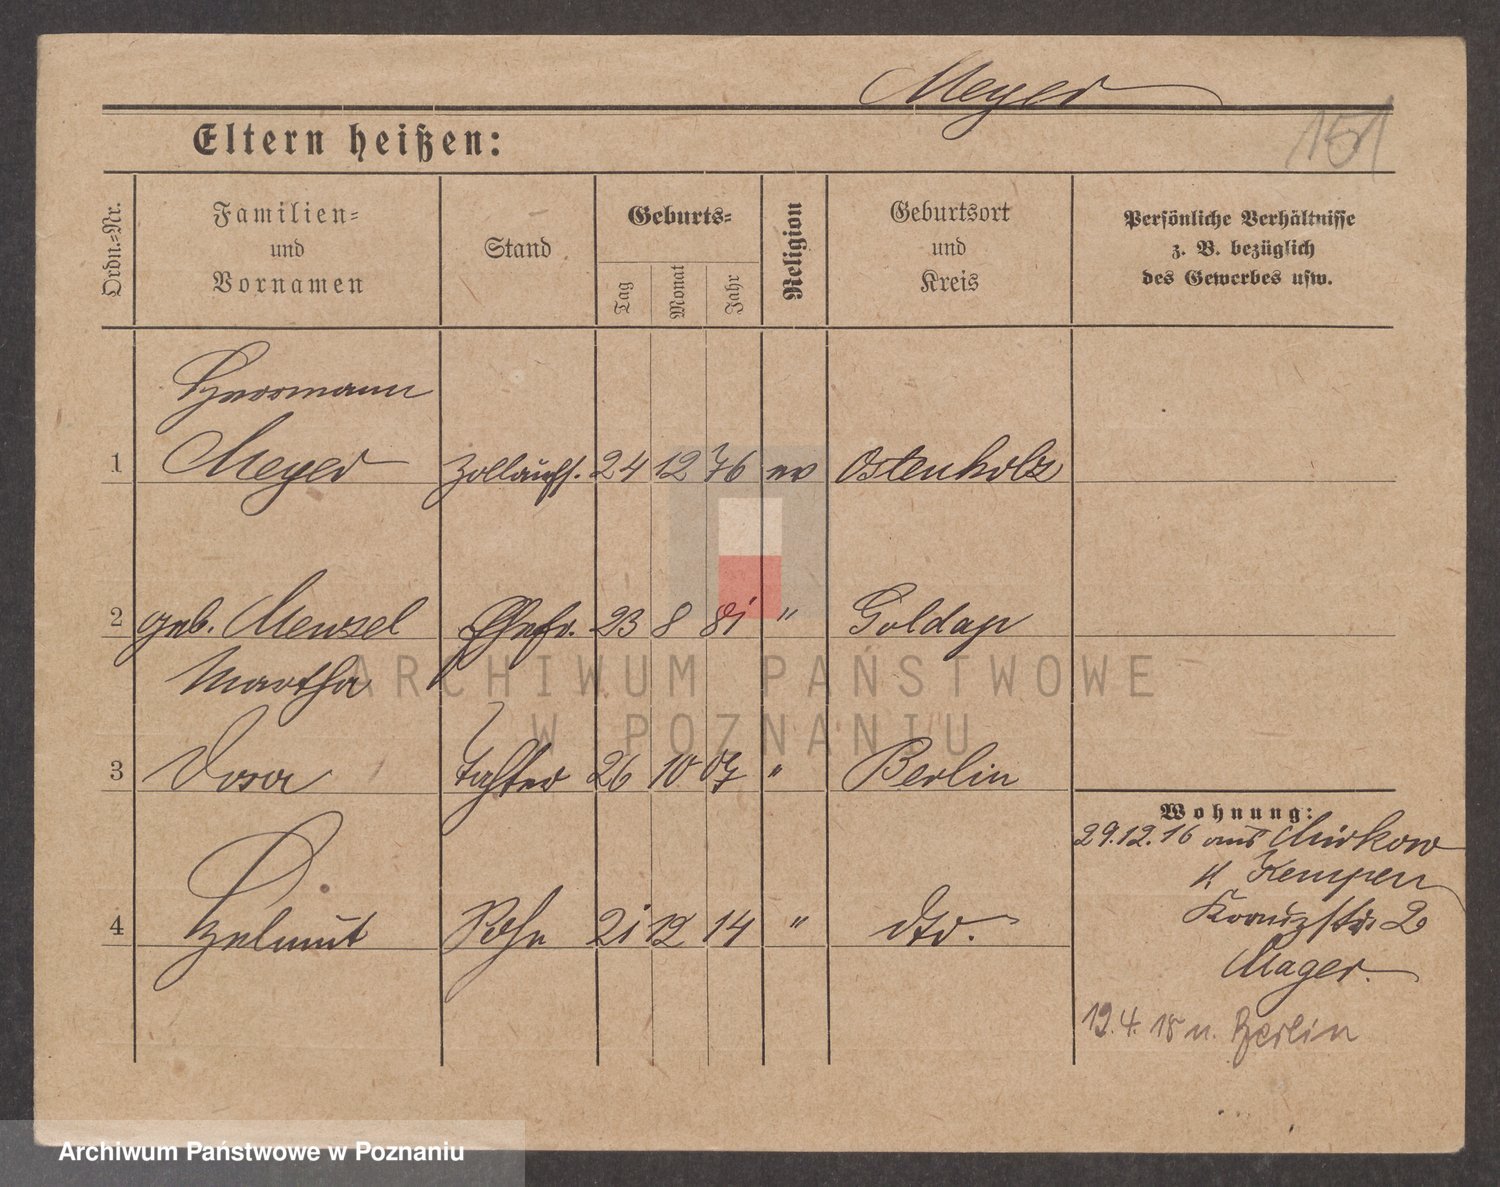 Meyer
151
Eltern heißen:
Ordn.=Nr.
Familien=
und
Vornamen
Stand
Geburts=
Tag
Monat
Jahr
Religion
Geburtsort
und
Kreis
Persönliche Verhältnisse
z. B. bezüglich
des Gewerbes usw.
Herrmann
1 Meyer Zollaufs. 24 12 76 ev Ostenholz
2 geb. Menzel Ehefr. 23 8 81 " Goldap
Martha
3 Dora Tochter 26 10 07 " Berlin
4 Helmut Sohn 21 12 14 " dto.
Wohnung:
29.12.16 aus Mirkow
Kr Kempen
2
Mager.
19.4.18 n. Berlin
ARCHIWUM PAŃSTWOWE
W POZNANIU
Archiwum Państwowe w Poznaniu